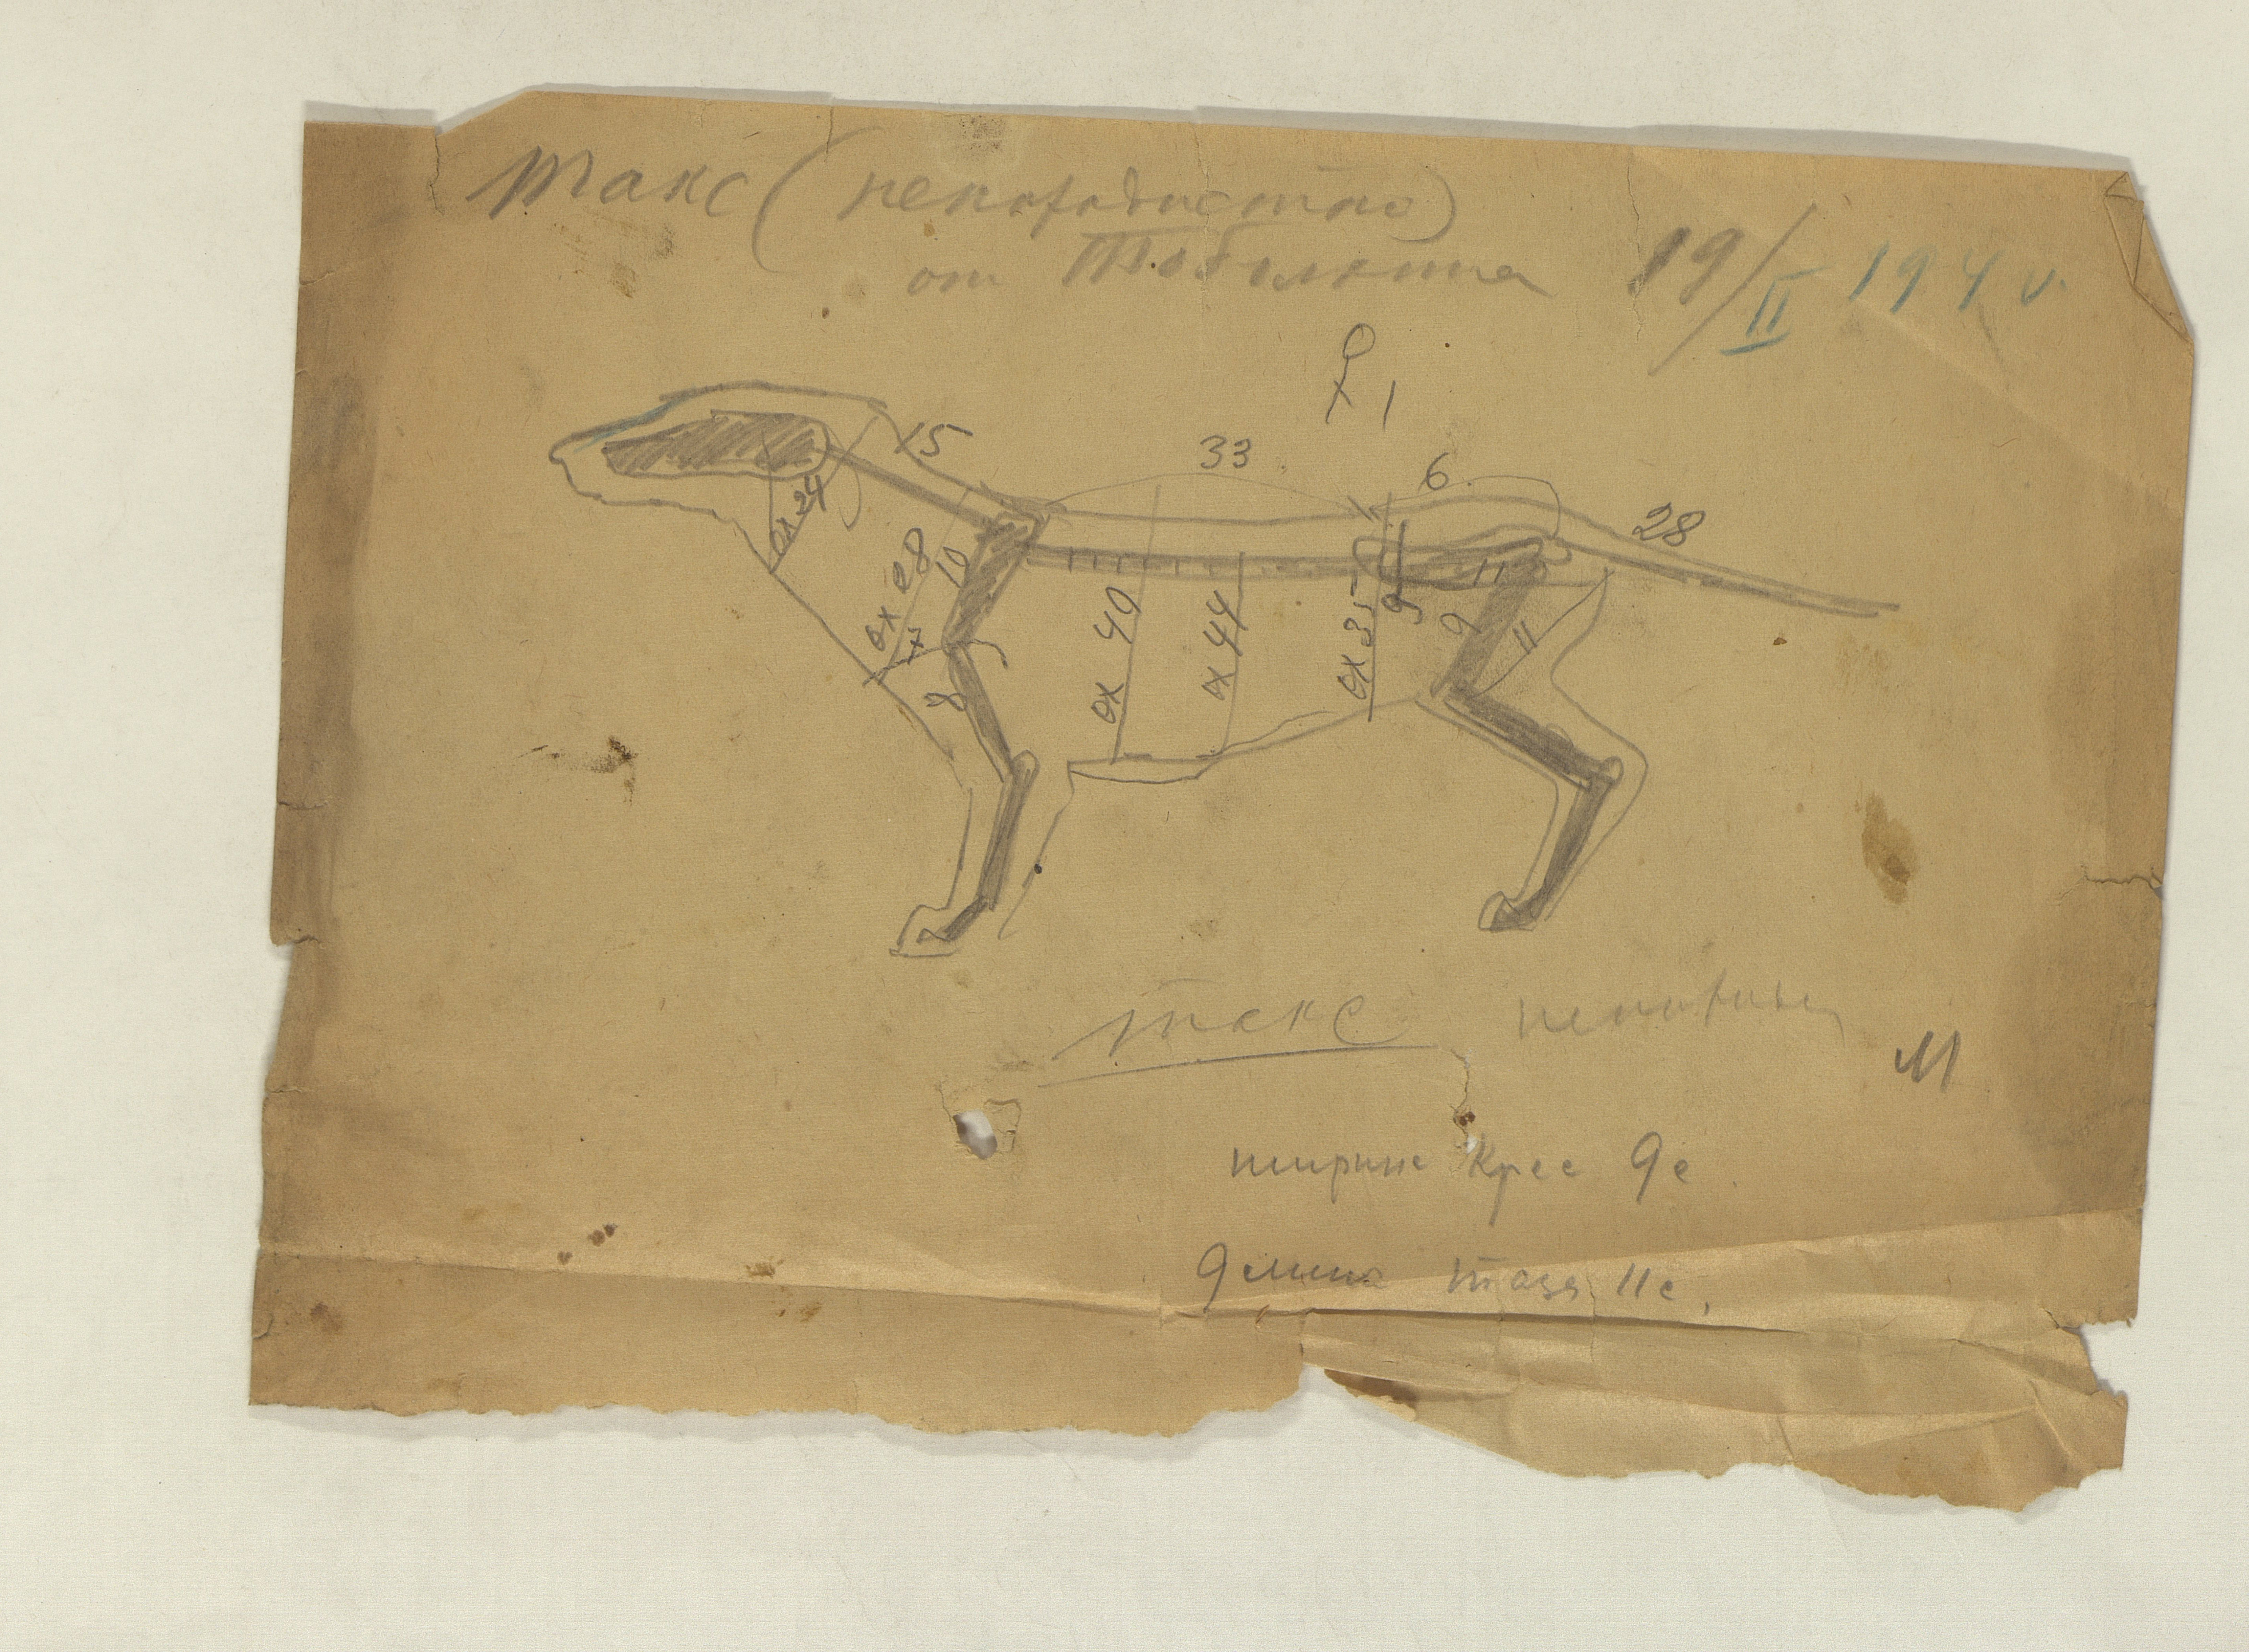 Такс (непородистая)
от
19/II 194
♀ 1
33
15
6
28
ох 24
ох 28
10
11
9
ох 40
ох 44
ох 35
9
11
8
Такс непородис
М
ширина крес 9 с
длина таза 11 с.